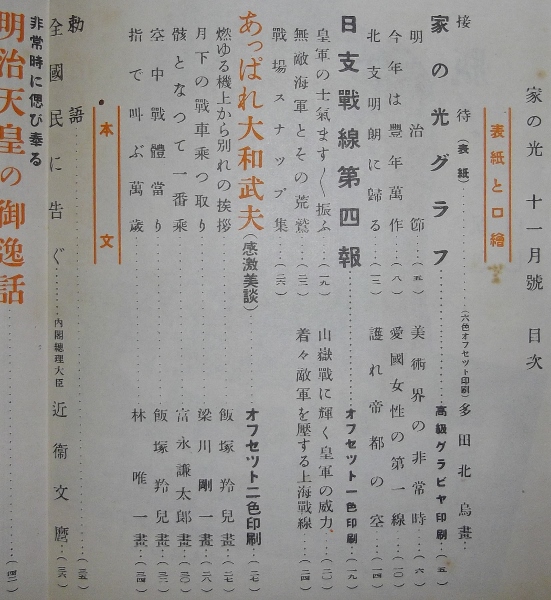 家の光 十一月號 目次
表紙と口繪
接待(表紙)……(六色オフセツト印刷)多田北烏畫…
家の光グラフ……高級グラビヤ印刷…(五)
明治節…(五) 美術界の非常時…(六)
今年は豐年萬作…(八) 愛國女性の第一線…(一〇)
北支明朗に歸る…(一二) 護れ帝都の空…(一四)
日支戰線第四報……オフセツト一色印刷…(一九)
皇軍の士氣ます〳〵振ふ…(一九) 山嶽戰に輝く皇軍の威力…(二〇)
無敵海軍とその荒鷲…(二二) 着々敵軍を壓する上海戰線…(二四)
戰場スナツプ集…(二六)
あつぱれ大和武夫(感激美談)……オフセツト二色印刷…(二七)
燃ゆる機上から別れの挨拶……飯塚羚兒畫…(二七)
月下の戰車乘つ取り……梁川剛一畫…(二八)
骸となつて一番乘り……富永謙太郎畫…(三〇)
空中戰體當り……飯塚羚兒畫…(三二)
指で叫ぶ萬歲……林唯一畫…(三四)
本文
勅語……(三五)
全國民に告ぐ……內閣總理大臣 近衞文麿…(三六)
非常時に偲び奉る
明治天皇の御逸話……(四二)